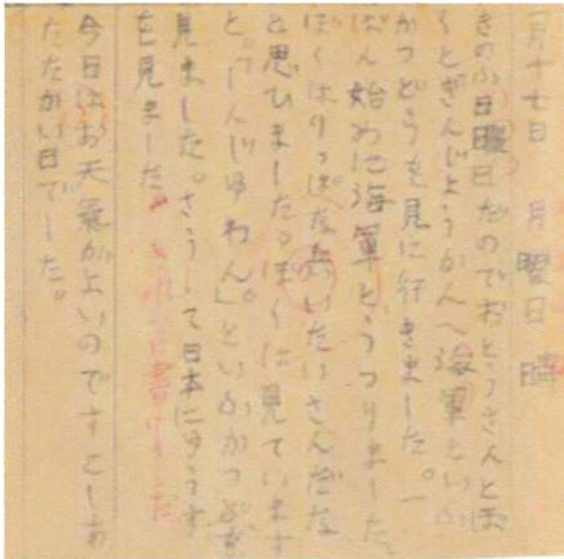 一月十七日　月曜日　晴
きのふ日曜日なのでおとうさんとぼ
くとぎんじようかんへ海軍といふ
かつどうを見に行きました。一
ばん始めに海軍とうつりました。
ぼくはりっぱな兵いたいさんだな
と思ひました。ぼくは見ています
と。「しんじゆわん。」といふかつどを
見ました。さうして日本にゆうす
を見ました
今日はお天氣がよいのですこしあ
たたかい日でした。